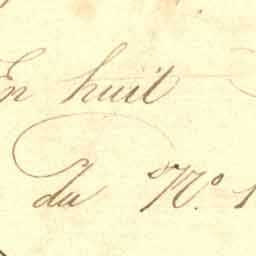 En huit
du N.º 1